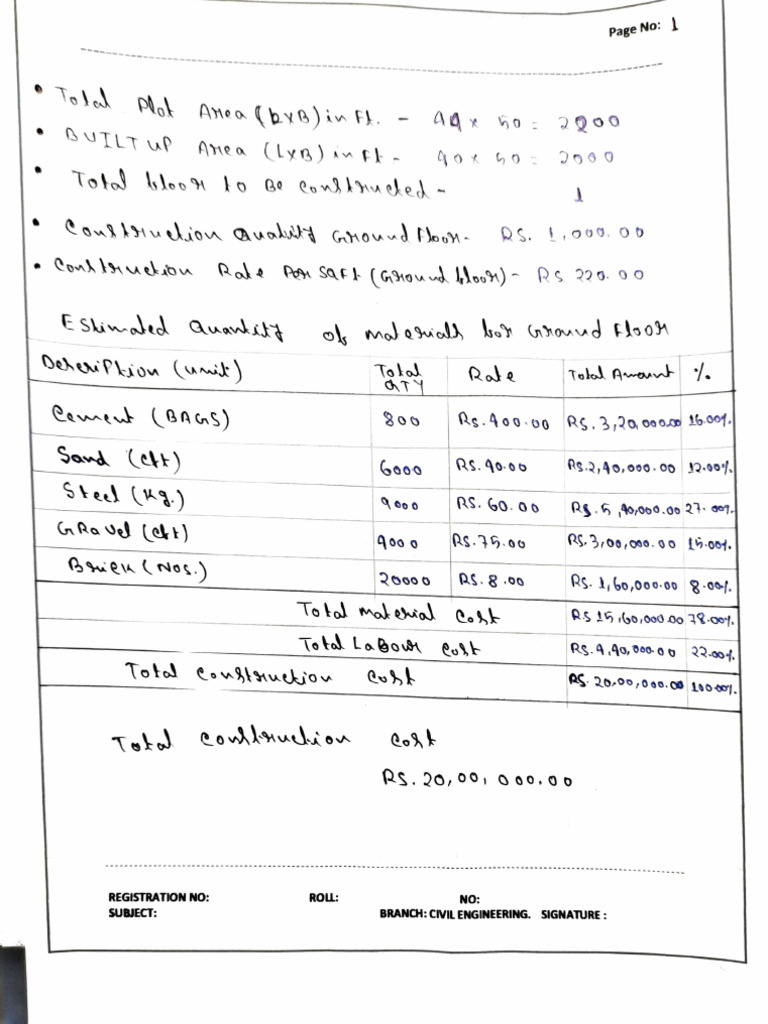 Page No: 1
• Total Plot Area (LXB) in Ft. - 44 x 50 = 2200
• BUILT UP Area (LXB) in Ft - 40 x 50 = 2000
• Total floor to Be constructed - 1
• Construction Quality Ground Floor - RS. 1,000.00
• Construction Rate Per SqFt (Ground floor) - RS. 220.00
Estimated Quantity of materials for Ground Floor
Description (unit) Total QTY Rate Total Amount %
Cement (BAGS) 800 RS. 400.00 RS. 3,20,000.00 16.00%
Sand (Cft) 6000 RS. 40.00 RS. 2,40,000.00 12.00%
Steel (Kg.) 9000 RS. 60.00 RS. 5,40,000.00 27.00%
Gravel (Cft) 4000 RS. 75.00 RS. 3,00,000.00 15.00%
Brick (Nos.) 20000 RS. 8.00 RS. 1,60,000.00 8.00%
Total material cost RS 15,60,000.00 78.00%
Total Labour cost RS. 4,40,000.00 22.00%
Total construction cost RS. 20,00,000.00 100.00%
Total construction cost
RS. 20,00,000.00
REGISTRATION NO: ROLL: NO:
SUBJECT: BRANCH: CIVIL ENGINEERING. SIGNATURE :